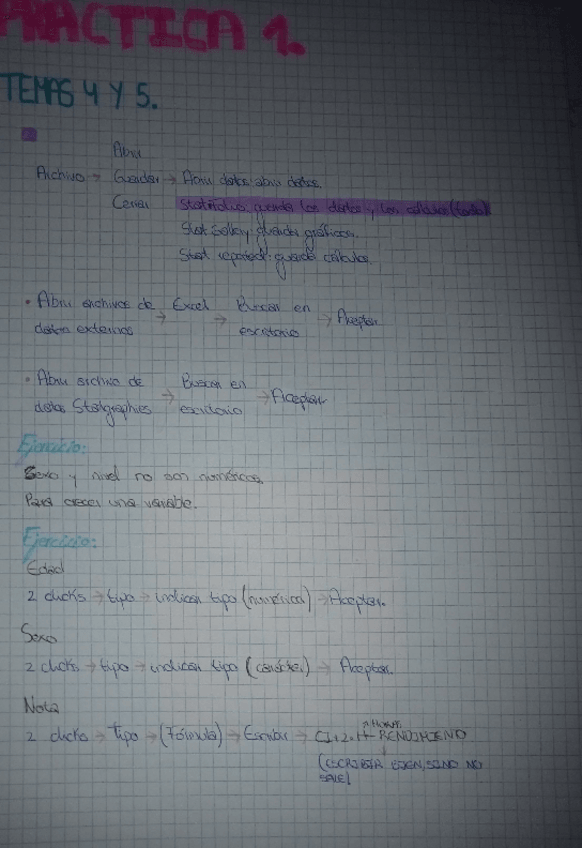 PRACTICA 1.
TEMAS 4 Y 5.
Abrir
Archivo → Guardar → Abrir datos: abrir datos.
Cerrar Statfolio: guarda los datos y los cálculos (todo)
Stat gallery: guarda gráficos.
Stat reporter: guarda cálculos.
• Abrir archivos de → Excel → Buscar en → Aceptar
datos externos escritorio
• Abrir archivo de → Buscar en → Aceptar
datos Statgraphics escritorio
Ejercicio:
Sexo y nivel no son numéricos.
Para crear una variable.
Ejercicio:
Edad
2 clicks → tipo → indicar tipo (numérica) → Aceptar.
Sexo
2 clicks → tipo → indicar tipo (carácter) → Aceptar.
Nota
2 clicks → Tipo → (Fórmula) → Escribir → RENDIMIENO
(ESCRIBIR BIEN, SINO NO
SALE)